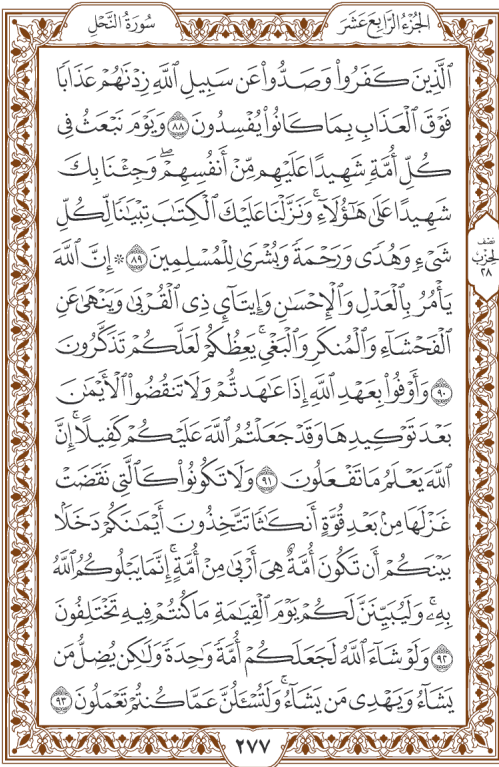 الجُزْءُ الرَّابِعَ عَشَرَ
سُورَةُ النَّحْلِ
ٱلَّذِينَ كَفَرُواْ وَصَدُّواْ عَن سَبِيلِ ٱللَّهِ زِدْنَٰهُمْ عَذَابًا
فَوْقَ ٱلْعَذَابِ بِمَا كَانُواْ يُفْسِدُونَ ٨٨ وَيَوْمَ نَبْعَثُ فِي
كُلِّ أُمَّةٖ شَهِيدًا عَلَيْهِم مِّنْ أَنفُسِهِمْۖ وَجِئْنَا بِكَ
شَهِيدًا عَلَىٰ هَٰٓؤُلَآءِۚ وَنَزَّلْنَا عَلَيْكَ ٱلْكِتَٰبَ تِبْيَٰنٗا لِّكُلِّ
شَيْءٖ وَهُدٗى وَرَحْمَةٗ وَبُشْرَىٰ لِلْمُسْلِمِينَ ٨٩ ۞ إِنَّ ٱللَّهَ
يَأْمُرُ بِٱلْعَدْلِ وَٱلْإِحْسَٰنِ وَإِيتَآيِٕ ذِي ٱلْقُرْبَىٰ وَيَنْهَىٰ عَنِ
ٱلْفَحْشَآءِ وَٱلْمُنكَرِ وَٱلْبَغْيِۚ يَعِظُكُمْ لَعَلَّكُمْ تَذَكَّرُونَ
٩٠ وَأَوْفُواْ بِعَهْدِ ٱللَّهِ إِذَا عَٰهَدتُّمْ وَلَا تَنقُضُواْ ٱلْأَيْمَٰنَ
بَعْدَ تَوْكِيدِهَا وَقَدْ جَعَلْتُمُ ٱللَّهَ عَلَيْكُمْ كَفِيلًاۚ إِنَّ
ٱللَّهَ يَعْلَمُ مَا تَفْعَلُونَ ٩١ وَلَا تَكُونُواْ كَٱلَّتِي نَقَضَتْ
غَزْلَهَا مِنۢ بَعْدِ قُوَّةٍ أَنكَٰثٗا تَتَّخِذُونَ أَيْمَٰنَكُمْ دَخَلَۢا
بَيْنَكُمْ أَن تَكُونَ أُمَّةٌ هِيَ أَرْبَىٰ مِنْ أُمَّةٍۚ إِنَّمَا يَبْلُوكُمُ ٱللَّهُ
بِهِۦۚ وَلَيُبَيِّنَنَّ لَكُمْ يَوْمَ ٱلْقِيَٰمَةِ مَا كُنتُمْ فِيهِ تَخْتَلِفُونَ
٩٢ وَلَوْ شَآءَ ٱللَّهُ لَجَعَلَكُمْ أُمَّةٗ وَٰحِدَةٗ وَلَٰكِن يُضِلُّ مَن
يَشَآءُ وَيَهْدِي مَن يَشَآءُۚ وَلَتُسْـَٔلُنَّ عَمَّا كُنتُمْ تَعْمَلُونَ ٩٣
نصف
الحزب
٢٨
٢٧٧